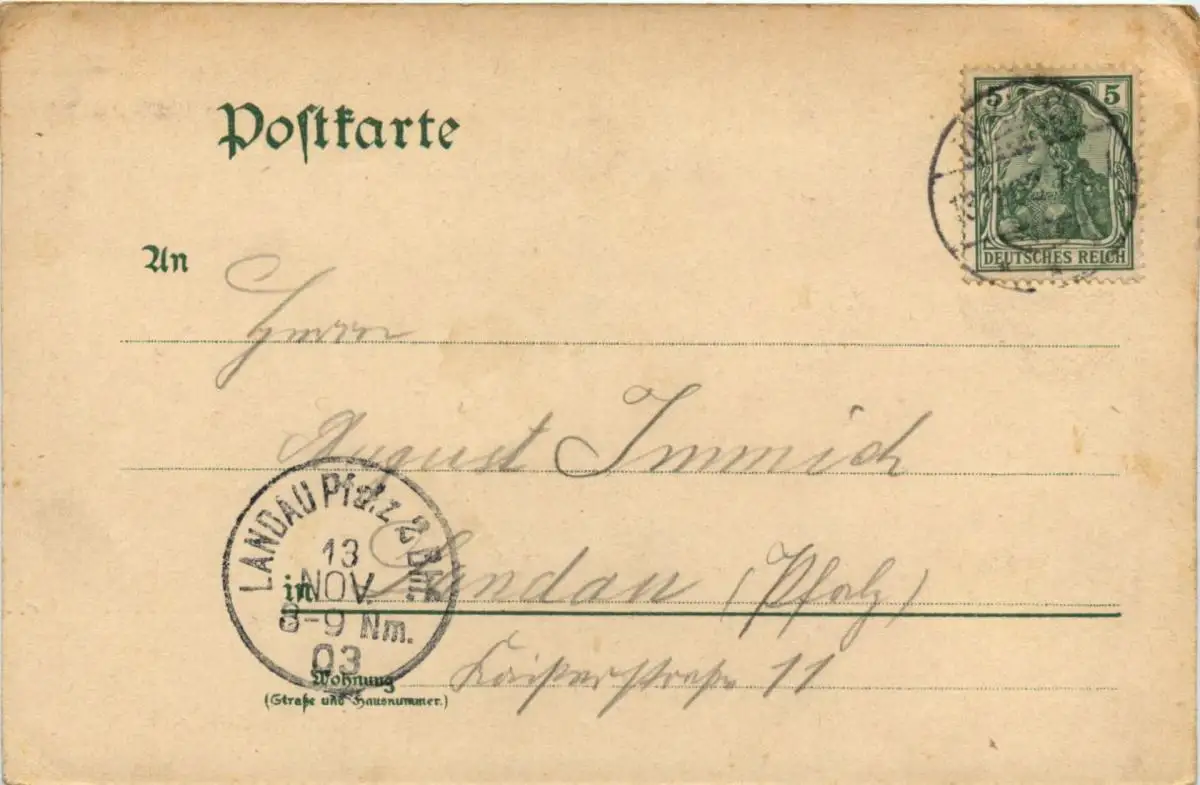 Postkarte
5 5
DEUTSCHES REICH
An
Herrn
August Immich
LANDAU Pfalz 2 Bhf.
13
NOV.
8-9 Nm.
03
in Landau (Pfalz)
Wohnung Kaiserstraße 11
(Straße und Hausnummer.)